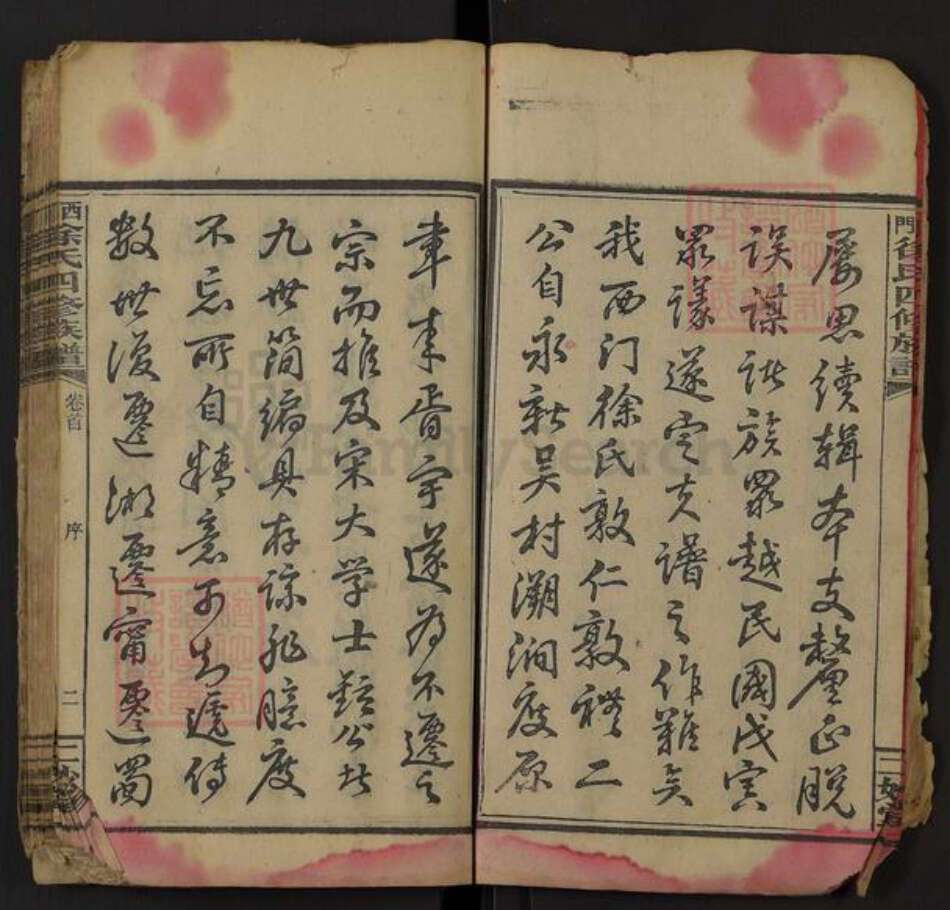 門徐氏四修族譜
屡思續輯本支釐正脫
誤謀諸族眾越民國戊寅
眾議遂定夫譜之作難矣
我西门徐氏敦仁敦禮二
公自永新吴村溯洄度原
聿来胥宇遂為不遷之
宗而推及宋大学士鉉公廿
九世简编具存諒非臆度
不忘所自精意可知遞傳
数世復遷湘遷甯遷蜀
西徐氏四修族譜
卷首
序
二
FamilySearch